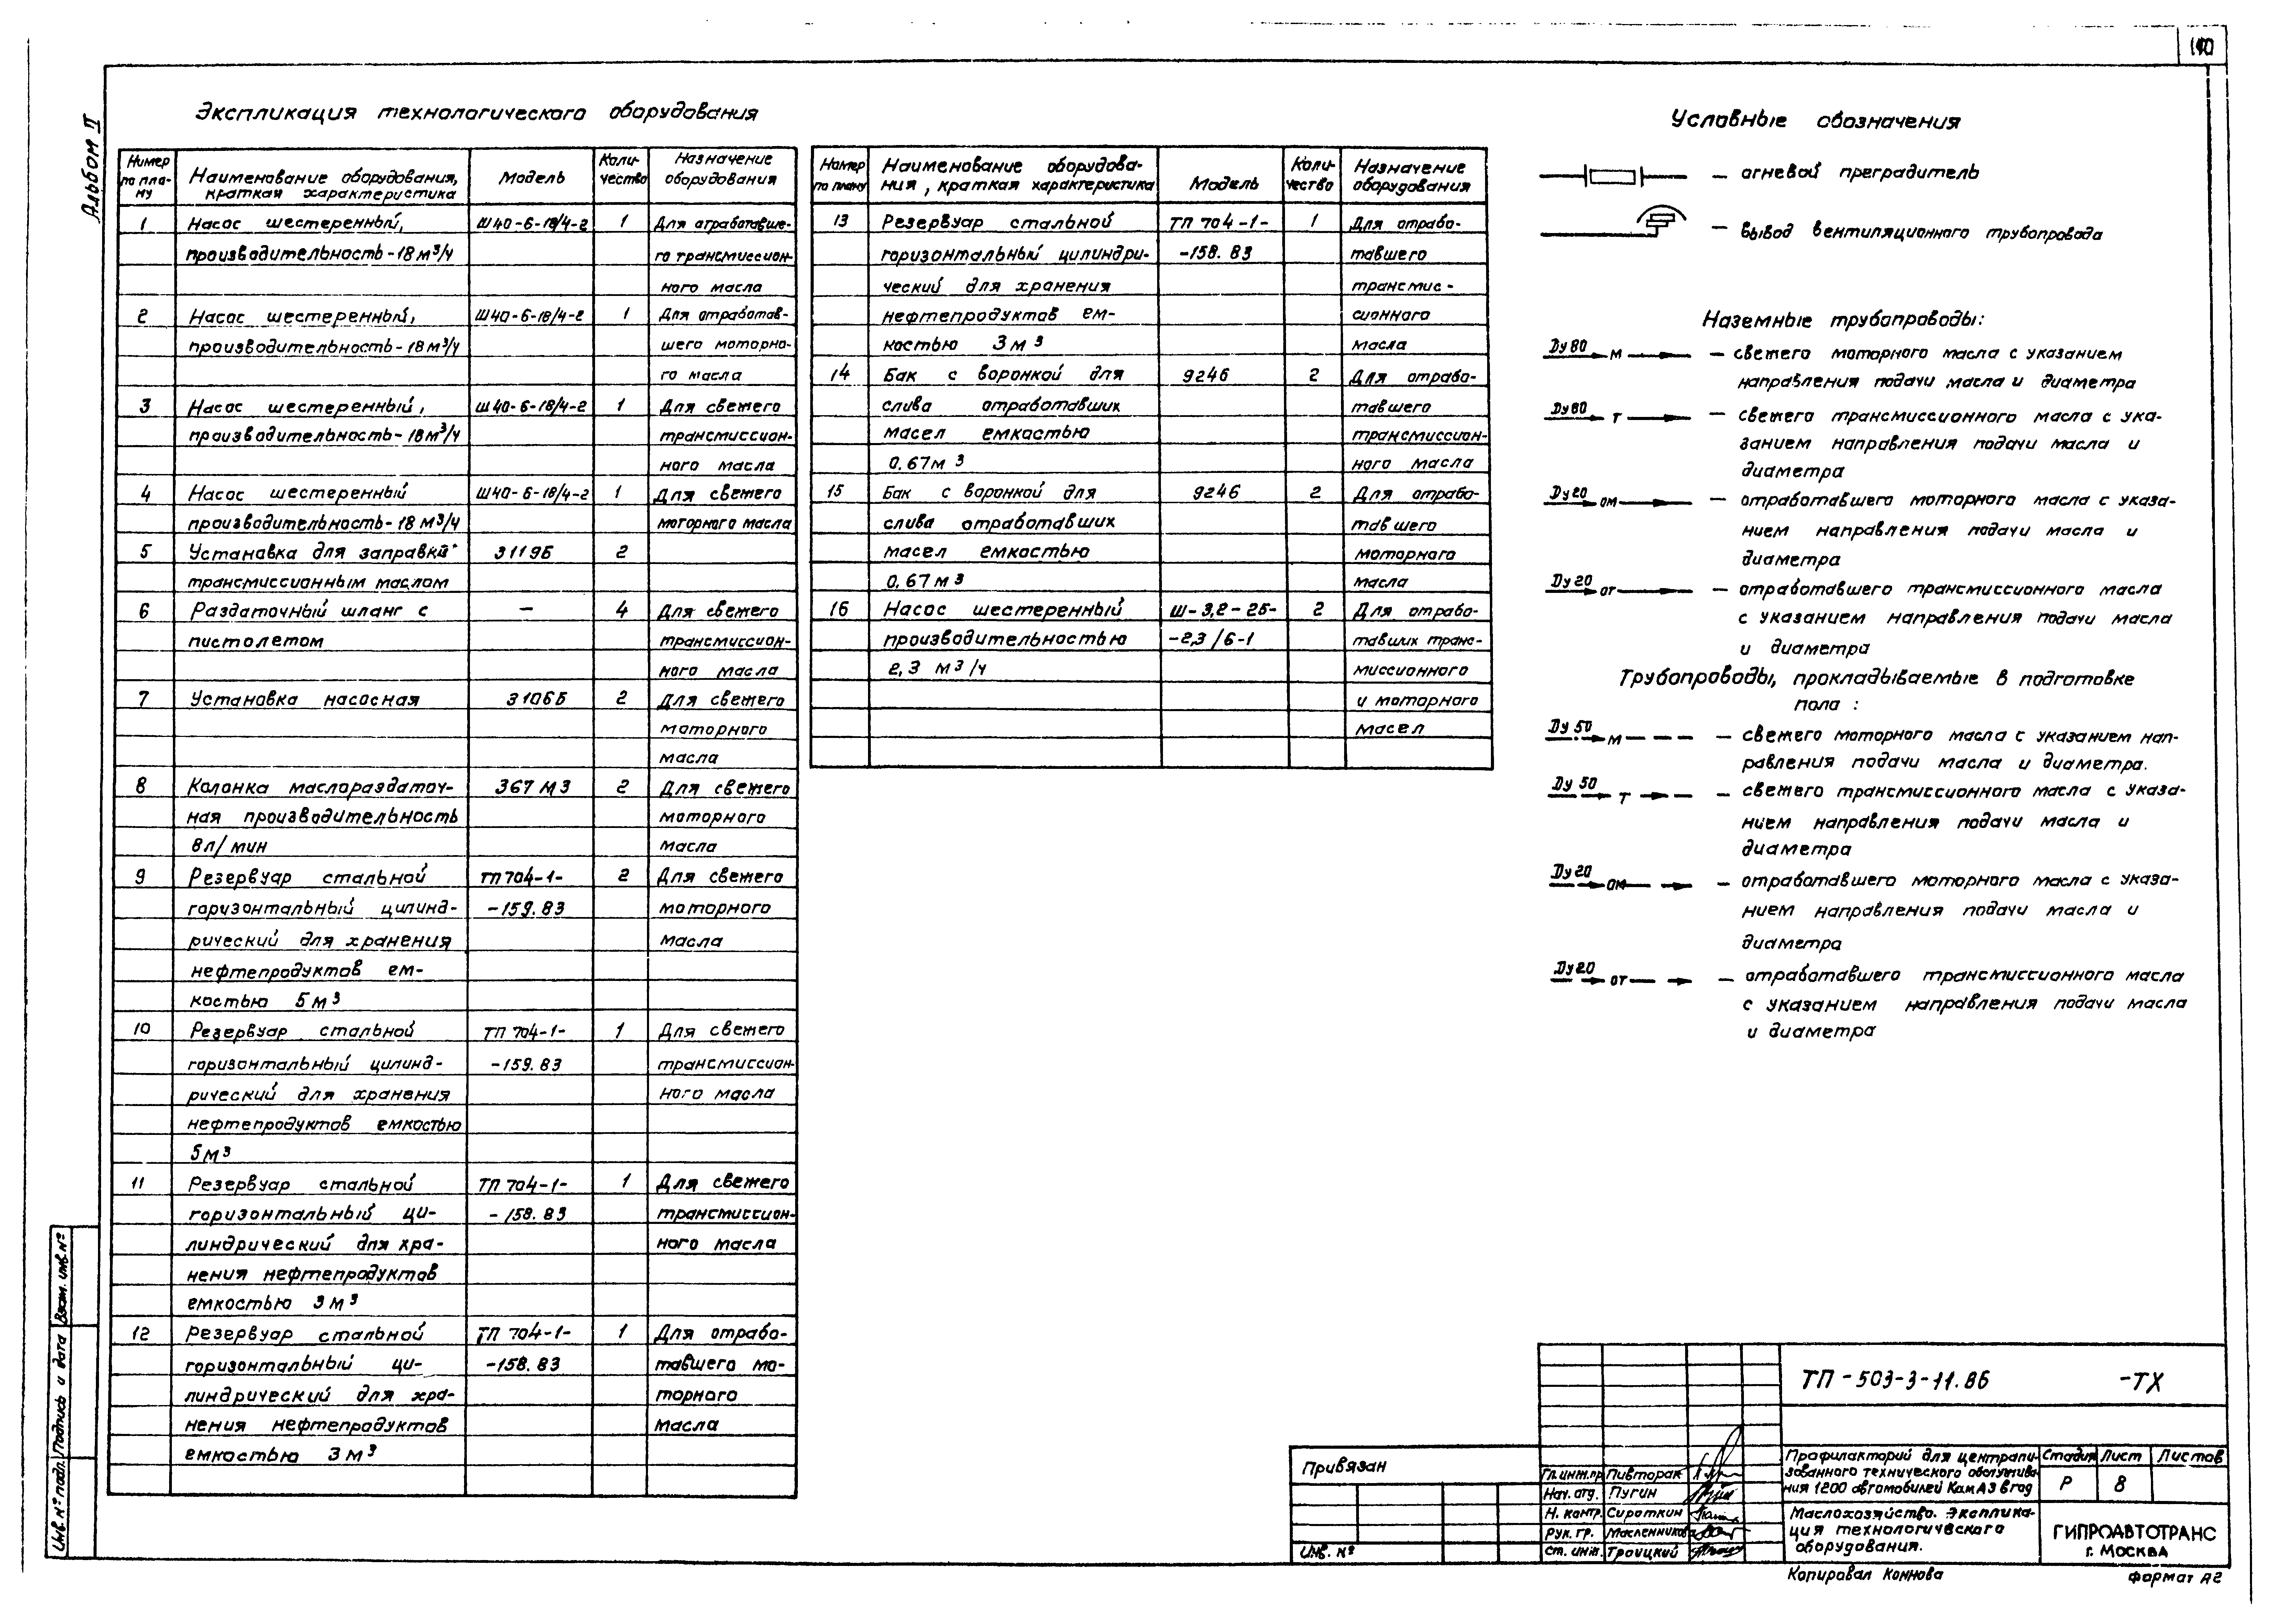 Альбом II
Экспликация технологического оборудования
Номер по плану | Наименование оборудования, краткая характеристика | Модель | Количество | Назначение оборудования
1 Насос шестеренный, Ш40-6-18/4-2 1 Для отработавше-
производительность-18 м³/ч го трансмиссион-
ного масла
2 Насос шестеренный, Ш40-6-18/4-2 1 Для отработав-
производительность-18 м³/ч шего моторно-
го масла
3 Насос шестеренный, Ш40-6-18/4-2 1 Для свежего
производительность-18 м³/ч трансмиссион-
ного масла
4 Насос шестеренный Ш40-6-18/4-2 1 Для свежего
производительность-18 м³/ч моторного масла
5 Установка для заправки 3119Б 2
трансмиссионным маслом
6 Раздаточный шланг с – 4 Для свежего
пистолетом трансмиссион-
ного масла
7 Установка насосная 3106Б 2 Для свежего
моторного
масла
8 Колонка маслораздаточ- 367 М3 2 Для свежего
ная производительность моторного
8 л/мин масла
9 Резервуар стальной ТП 704-1- 2 Для свежего
горизонтальный цилинд- -159.83 моторного
рический для хранения масла
нефтепродуктов ем-
костью 5 м³
10 Резервуар стальной ТП 704-1- 1 Для свежего
горизонтальный цилинд- -159.83 трансмиссион-
рический для хранения ного масла
нефтепродуктов емкостью
5 м³
11 Резервуар стальной ТП 704-1- 1 Для свежего
горизонтальный ци- -158.83 трансмиссион-
линдрический для хра- ного масла
нения нефтепродуктов
емкостью 3 м³
12 Резервуар стальной ТП 704-1- 1 Для отрабо-
горизонтальный ци- -158.83 тавшего мо-
линдрический для хра- торного
нения нефтепродуктов масла
емкостью 3 м³
Номер по плану | Наименование оборудования, краткая характеристика | Модель | Количество | Назначение оборудования
13 Резервуар стальной ТП 704-1- 1 Для отрабо-
горизонтальный цилиндри- -158.83 тавшего
ческий для хранения трансмис-
нефтепродуктов ем- сионного
костью 3 м³ масла
14 Бак с воронкой для 9246 2 Для отрабо-
слива отработавших тавшего
масел емкостью трансмиссион-
0.67 м³ ного масла
15 Бак с воронкой для 9246 2 Для отрабо-
слива отработавших тавшего
масел емкостью моторного
0.67 м³ масла
16 Насос шестеренный Ш-3,2-25- 2 Для отрабо-
производительностью -2,3/6-1 тавших транс-
2,3 м³/ч миссионного
и моторного
масел
Условные обозначения
– огневой преградитель
– вывод вентиляционного трубопровода
Наземные трубопроводы:
Ду 80 М – свежего моторного масла с указанием
направления подачи масла и диаметра
Ду 80 Т – свежего трансмиссионного масла с ука-
занием направления подачи масла и
диаметра
Ду 20 ОМ – отработавшего моторного масла с указа-
нием направления подачи масла и
диаметра
Ду 20 ОТ – отработавшего трансмиссионного масла
с указанием направления подачи масла
и диаметра
Трубопроводы, прокладываемые в подготовке
пола:
Ду 50 М – свежего моторного масла с указанием нап-
равления подачи масла и диаметра.
Ду 50 Т – свежего трансмиссионного масла с указа-
нием направления подачи масла и
диаметра
Ду 20 ОМ – отработавшего моторного масла с указа-
нием направления подачи масла и
диаметра
Ду 20 ОТ – отработавшего трансмиссионного масла
с указанием направления подачи масла
и диаметра
Взам. инв. №
Подпись и дата
Инв. № подл.
Привязан
Инв. №
Гл. инж. пр Пивторак
Нач. отд. Пугин
Н. контр. Сироткин
Рук. гр. Масленникова
Ст. инж. Троицкий
ТП-503-3-11.86 -ТХ
Профилакторий для централи-
зованного технического обслужива-
ния 1200 автомобилей КамАЗ в год
Стадия Лист Листов
Р 8
Маслохозяйство. Эксплика-
ция технологического
оборудования.
ГИПРОАВТОТРАНС
г. Москва
Копировал Коннова
Формат А2